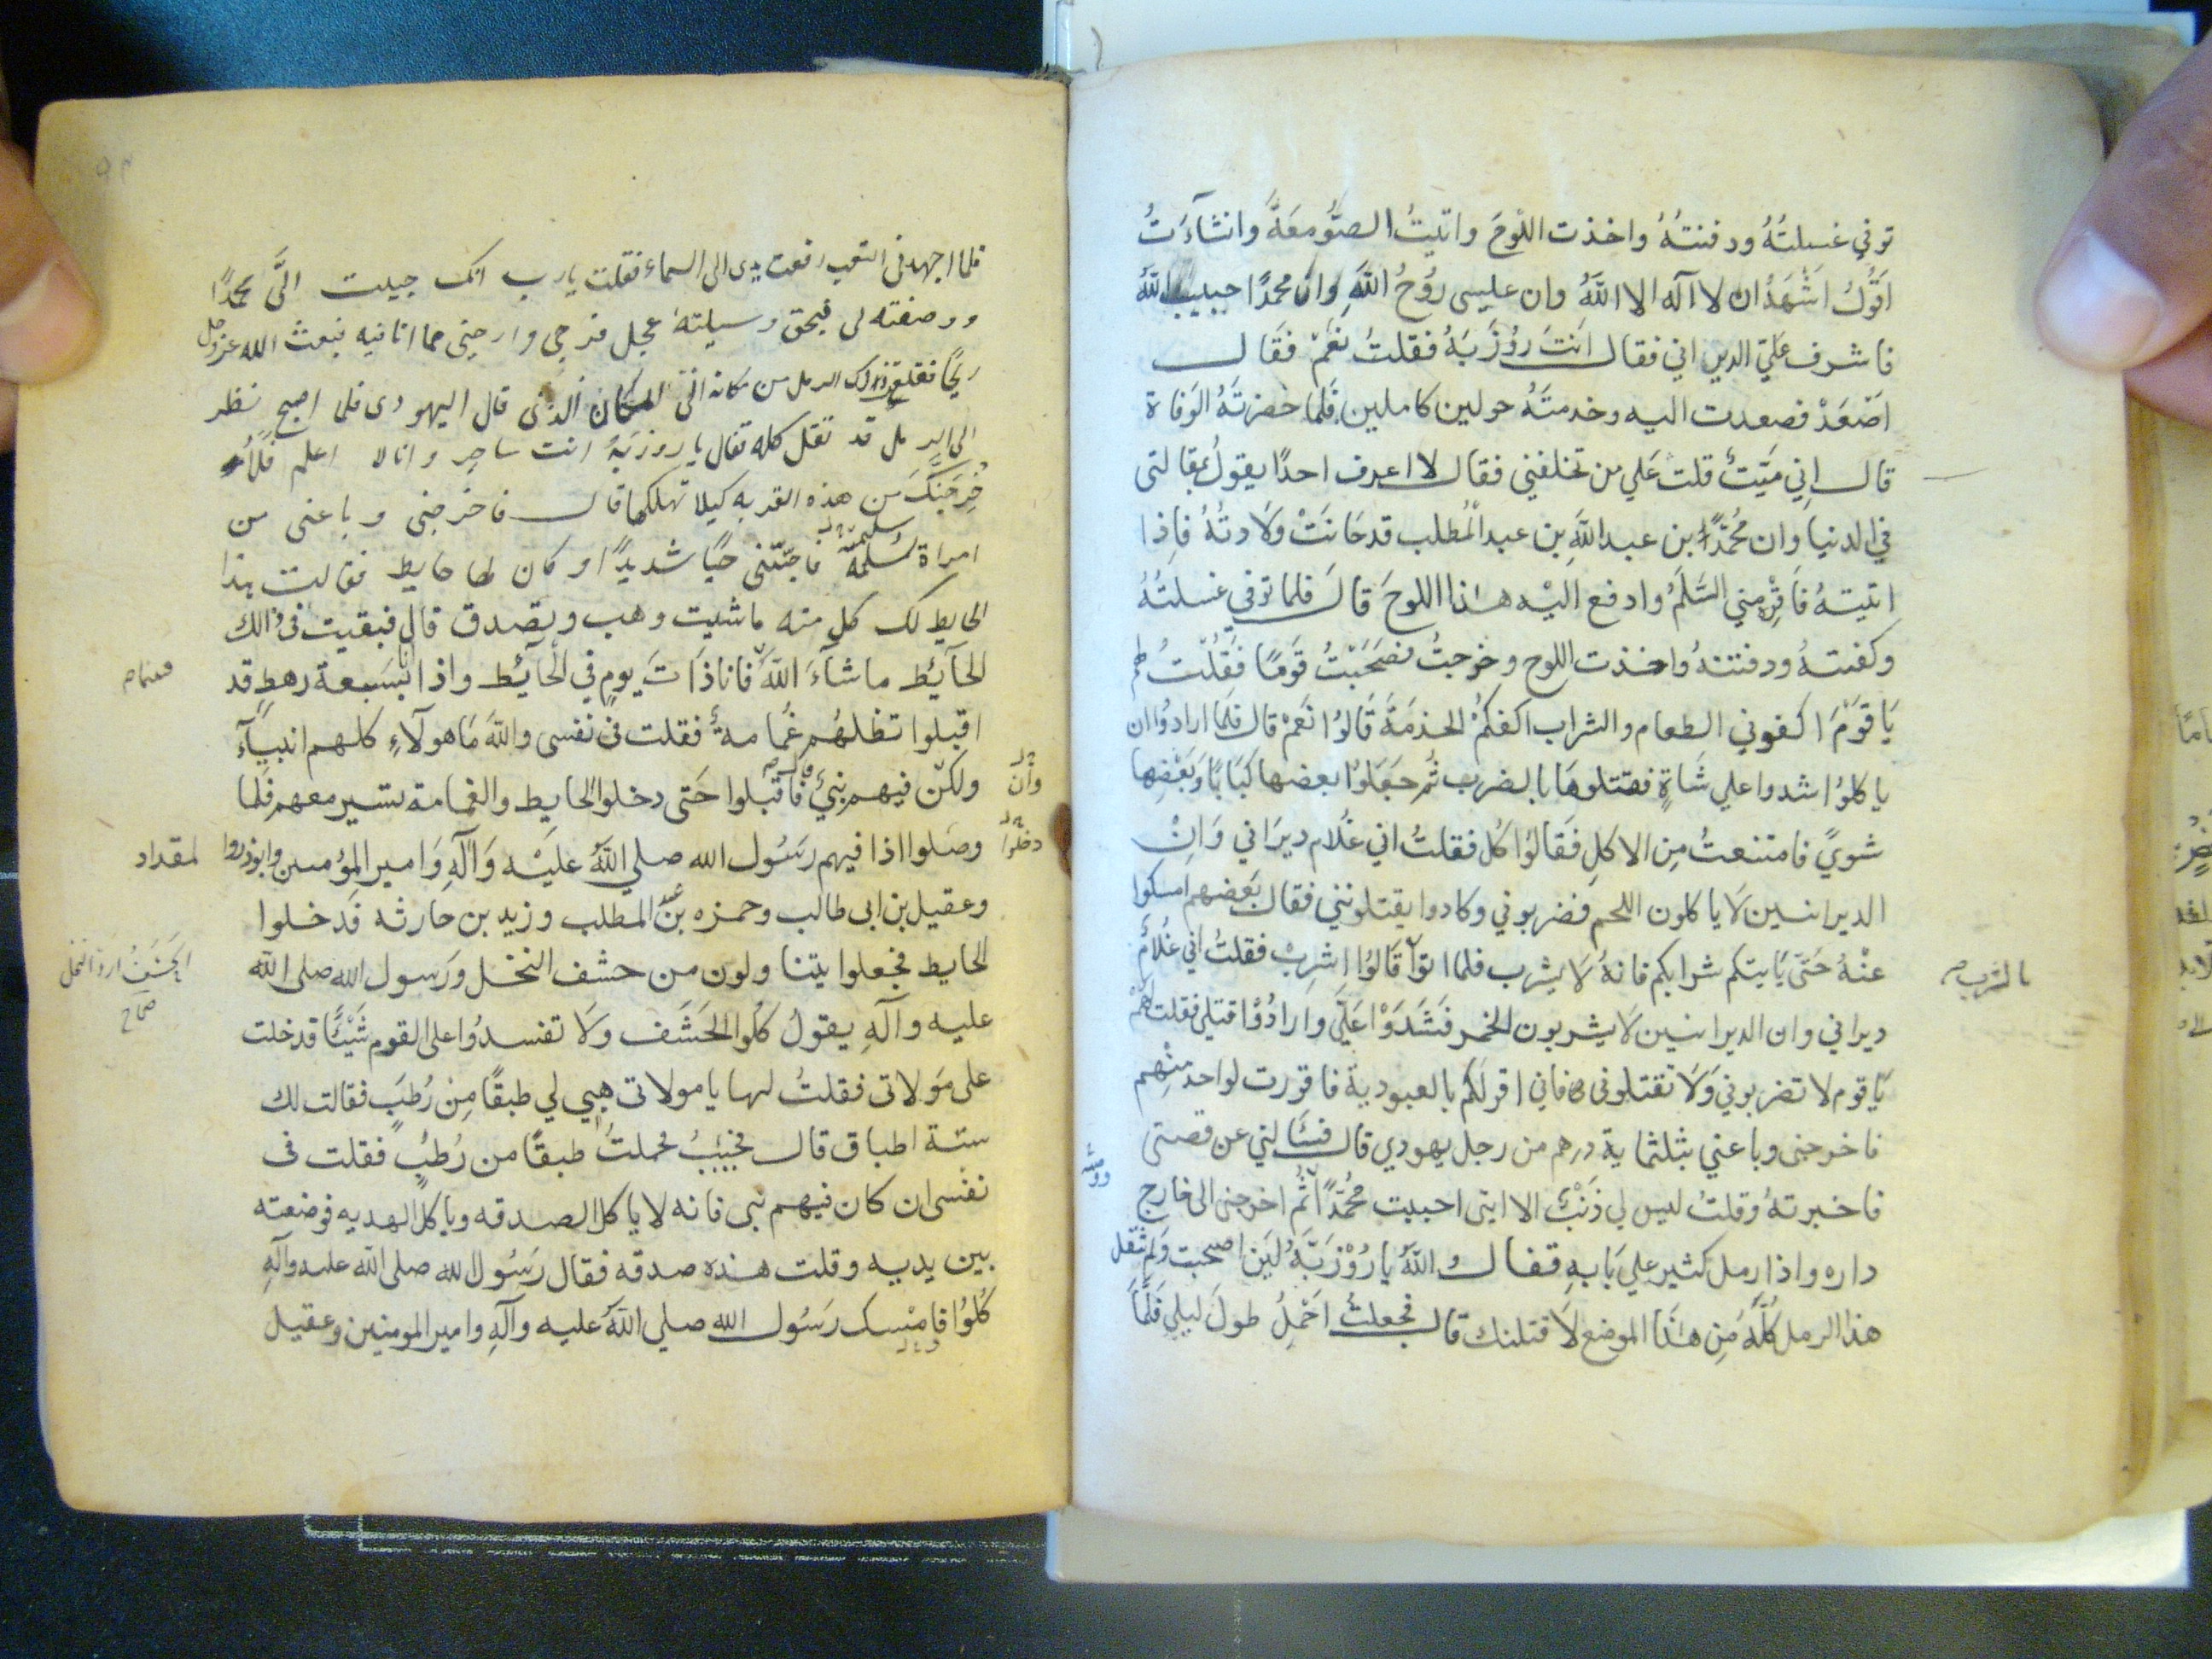 توفي غسلتُهُ ودفنتُهُ واخذت اللّوحَ واتيتُ الصَّومعَةَ وانشآءَتُ
اقُولُ اشْهَدُ ان لا آله الا اللّهُ وان عليسى رُوحُ اللّهِ وان محمدًا حبيب اللّهُ
فاشرف عَليَّ الديراني فقال انتَ رُوْزَبَهُ فقلتُ نعَمْ فقَال
اصْعَدْ فصعدت اليه وخدمتَهُ حولين كاملين فَلما حضرتَهُ الوَفاة
قال اِني مَيّتٌ قلت عَلي من تخلفني فقال لا اعرف احدًا يقولُ بمقالتى
في الدنيا وان مُحمّدًا بن عبد اللّهَ بن عبد المُطلب قد حَانَتْ وِلَادتُهُ فاِذا
اتيتهُ فَاقْرِهِ مِني السَّلَمُ وادفع اليْه هٰذا اللوحَ قالَ فلما توفي غسلتُهُ
وكفنتهُ ودفنتهُ واخذت اللوح وخرجتُ فصَحَبْتُ قَومًا فقُلتُ لهم
يَا قَوْمَ اكفوني الطعام والشراب اكفكُمْ الخدمَةَ قَالوُا نَعَمْ قال فلَمّا ارادوُا ان
ياكلوُا شدوا علي شَاةٍ فقتلوهَا بالضرب ثُم جَعَلوُا بعضها كبَابًا وَبَعْضِهَا
شويً فامتنعتُ مِن الاكلِ فقَالوُا كُل فقلتُ اني غُلام ديرَاني وَاِنْ
الديرانيين لَا ياكلون اللحم فضربوني وكادوا يقتلونني فقال بَعضهم امسكوا
عنْهُ حَتّى يَاتيتكم شرابكم فانهُ لَا يشرب فلما اتوا قَالوُا اشرِبْ فقلتُ اني غُلامٌ
ديراني وان الديرانيين لَا يشربون الخمر فَشَدَوْا عَلَيَّ وارادُوْا قتلي فقلت لهُمْ
يَا قوم لا تضربوني وَلَا تقتلونى فاني اقر لكم بالعبوديةَ فاقررت لواحد منْهم
فاخرجنى وباعني بثلثماية درهم من رجل يهودي قال فسَالني عن قصتى
فاخبرتهُ وقلتُ ليس لي ذَنْبٌ الا اننى احببت مُحمّدًا ثُم اخرجنى الى خارج
داره واذا رمل كثير علي بَابهِ فقال واللّهَ يا رُوْزَبَهُ لَئِن اصبحت وَلم تنقل
هذا الرمل كُلّهُ مِن هٰذَا الموضع لَا قتلنك قال فجعلتُ احْمِلُ طولَ ليلي فَلَمّا
بالشرب
فلما اجهدنى التعب رفعت يدى الى السماء فقلت يا رب انك حببت الَيَّ محمدًا
ووصفته لى فبحق وسيلته عجل فرجي وارحنى مما انا فيه فبعث الله عز وجل
ريحًا فقلع ذلك الرمل من مكانه الى المكان الذى قال اليهودى فلما اصبح نظر
الى الرمل قد نقل كله فقال يا روزبَهُ انت ساحر وانا لا اعلم فلَاُ
خْرِجَنّكَ من هذه القريه كيلا تهلكها قال فاخرجنى وباعنى من
امراة سُلميّة فاحبّتنى حبًا شديدًا وكان لها حايط فقالت هذا
الحايط لك كل منه ماشيت وهب وتصدق قال فبقيت فى ذالك
الحَآيئط ماشآءَ اللّهُ فانا ذَاتَ يومٍ في الْحَائِط واذا انا بسَبعة رهطٍ قد
اقبلوا تظلهُم غَمامةٌ فقلت في نفسى واللّهَ مَا هولآءِ كلهم انبيآءَ
ولكنّ فيهم نبيٌ فاَقبَلوا حَتى دخلوا الحايط والغمامة تسير معهم فلَما
وصَلوا اذا فيهم رسَوُل الله صلي اللّهُ عليْه وَآلهِ وَامير المؤمنين وابوذر و
وعقيل بن ابى طالب وحمزه بن عبد المطلب وزيد بن حارثه فَدخلوا
الحايط فجعلوا يتناولون من حشف النخل ورَسول الله صلى اللّه
عليه وآلهِ يقولُ كُلوا الحَشَف ولَا تفسدُوا على القوم شَيْئًا قد خلت
على مَولاتى فقلتُ لها يا مولاتى هِبي لي طبقًا مِن رُطبٍ فقالت لك
ستّة اطباق قال فجئتُ فحملتُ طبقًا من رُطبٍ فقلت فى
نفسى ان كان فيهم نبى فانه لا ياكل الصدقه وياكل الهديه فوضعته
بين يديه وقلت هذه صدقه فقال رَسُول الله صلى اللّه عليه وآلهِ
كُلوُا فامْسك رَسُول الله صلي اللّهُ عليه وآلهِ وامير المومنين وعقيل
وان
دخلوا
لمقداد
الحَشَفُ اردأ التمر
صحاح